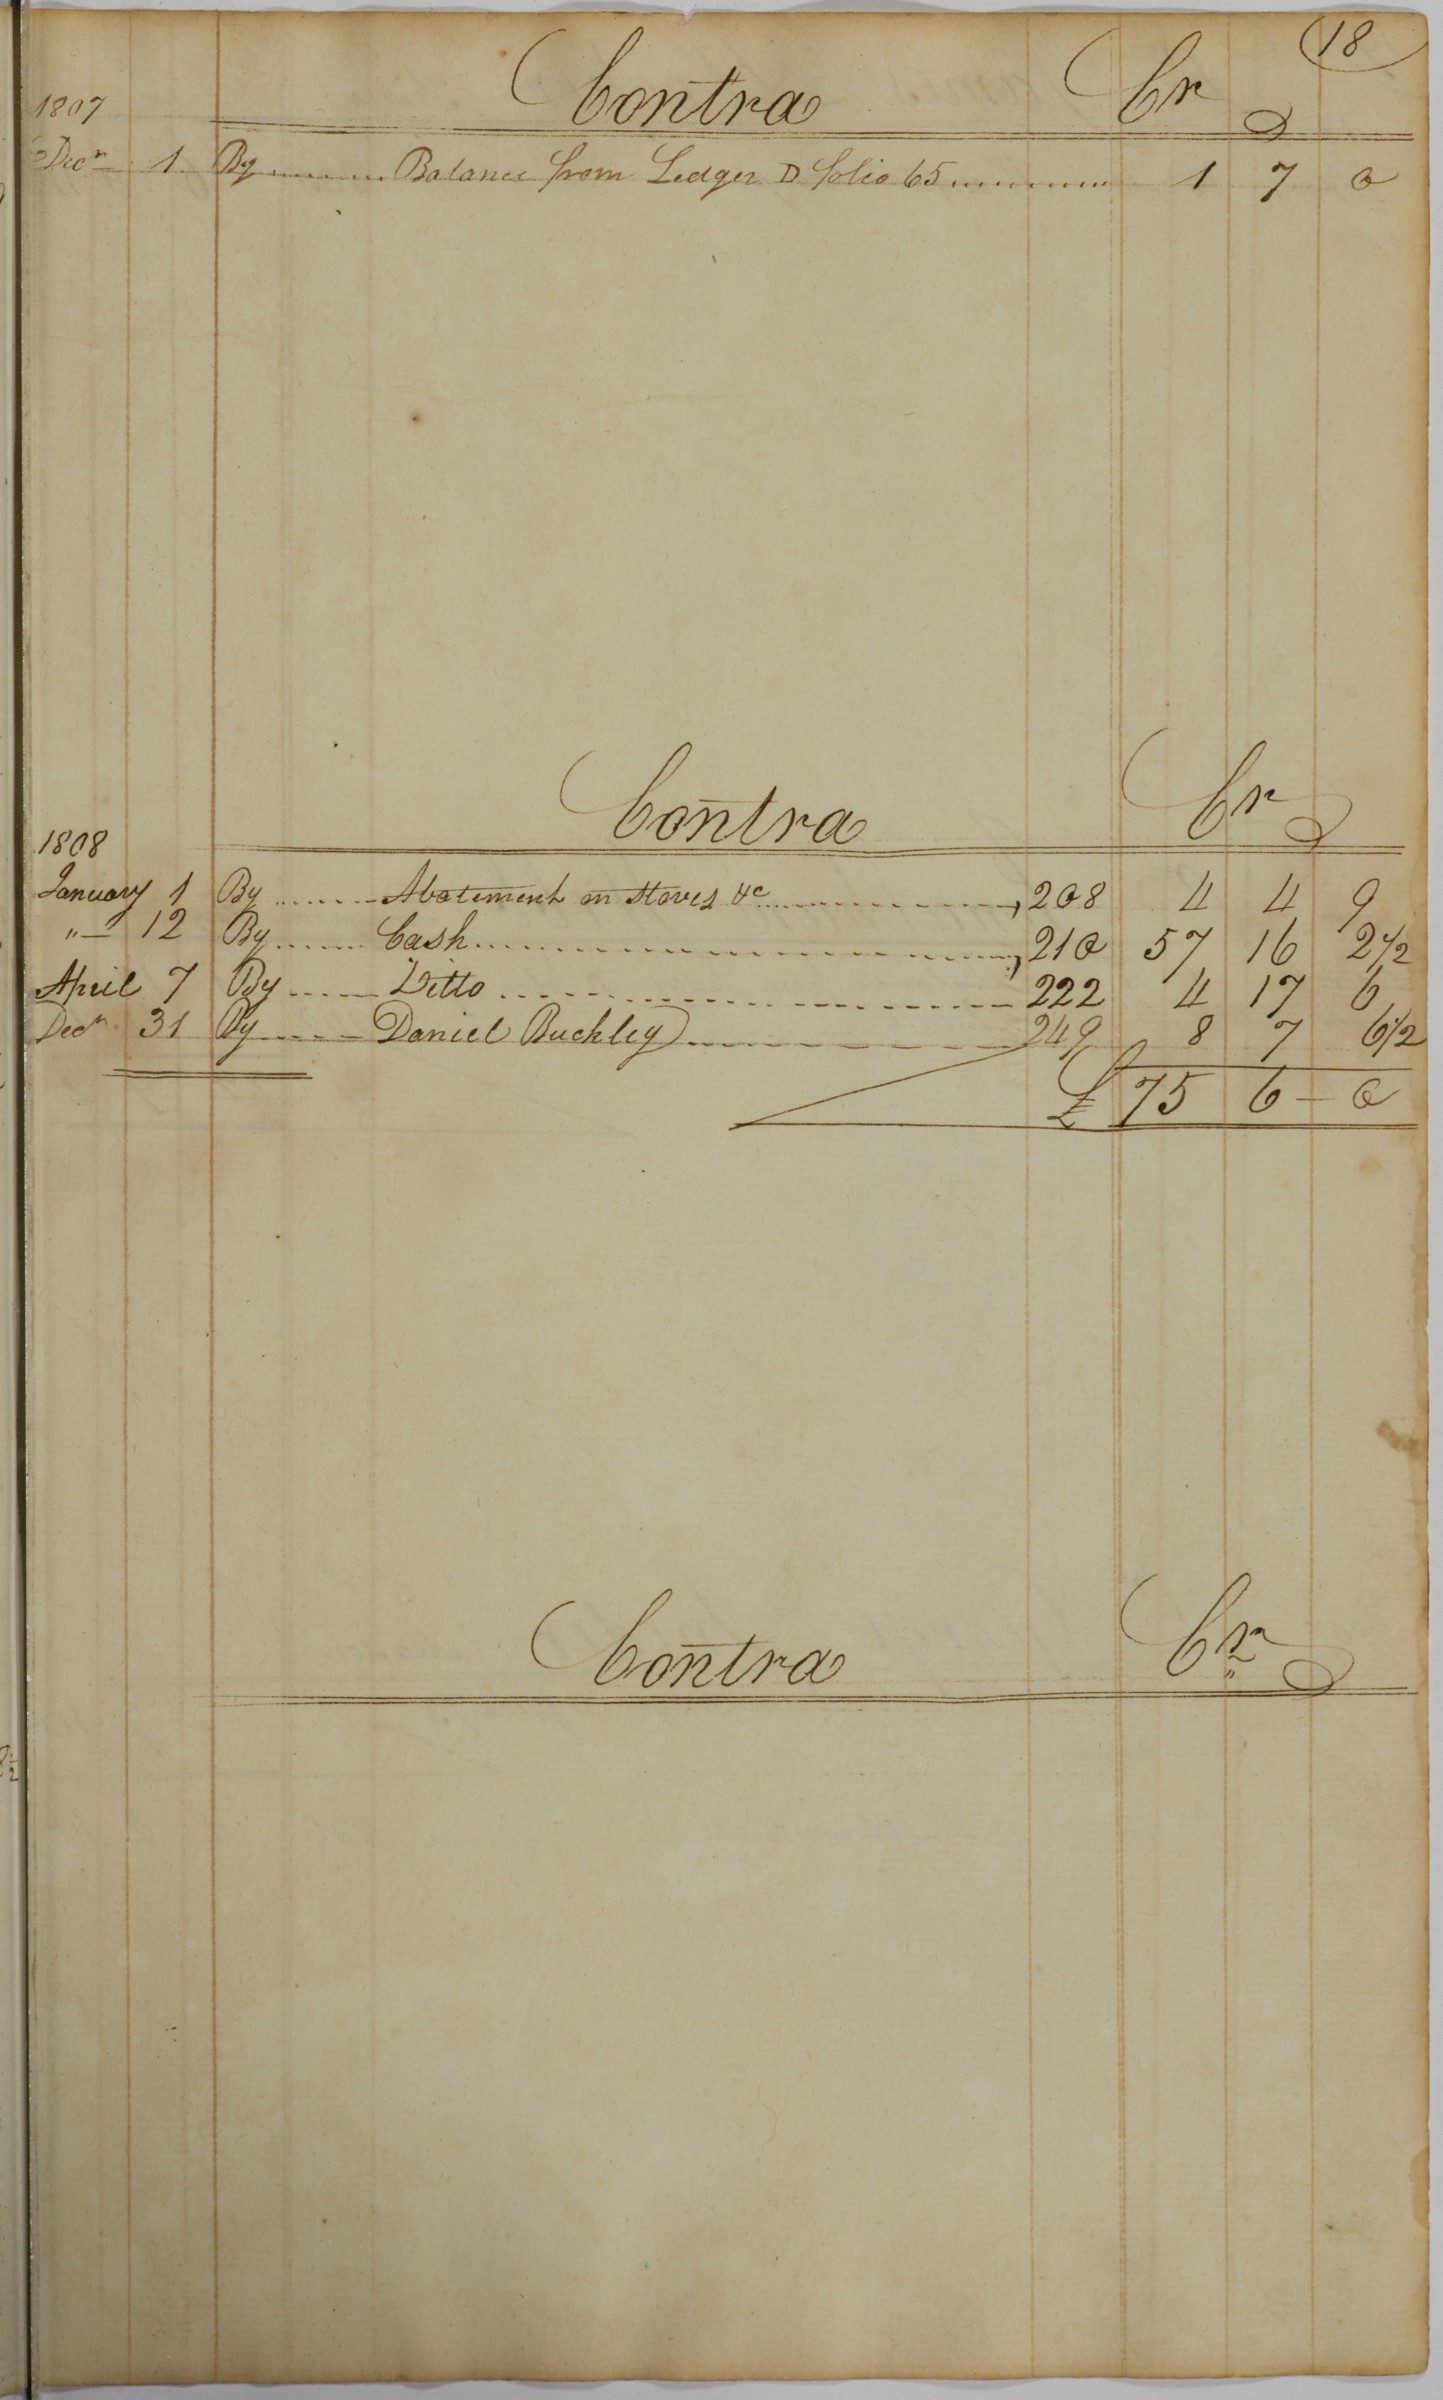 18
Contra Cr
1807
Decr 1 By Balance from Ledger D folio 65 1 7 0
Contra Cr
1808
January 1 By Abatement on Stoves &c 208 4 4 9
"— 12 By Cash 210 57 16 2 1/2
April 7 By Ditto 222 4 17 6
Decr 31 By Daniel Buckley 249 8 7 6 1/2
£ 75 6 — 0
Contra Cr